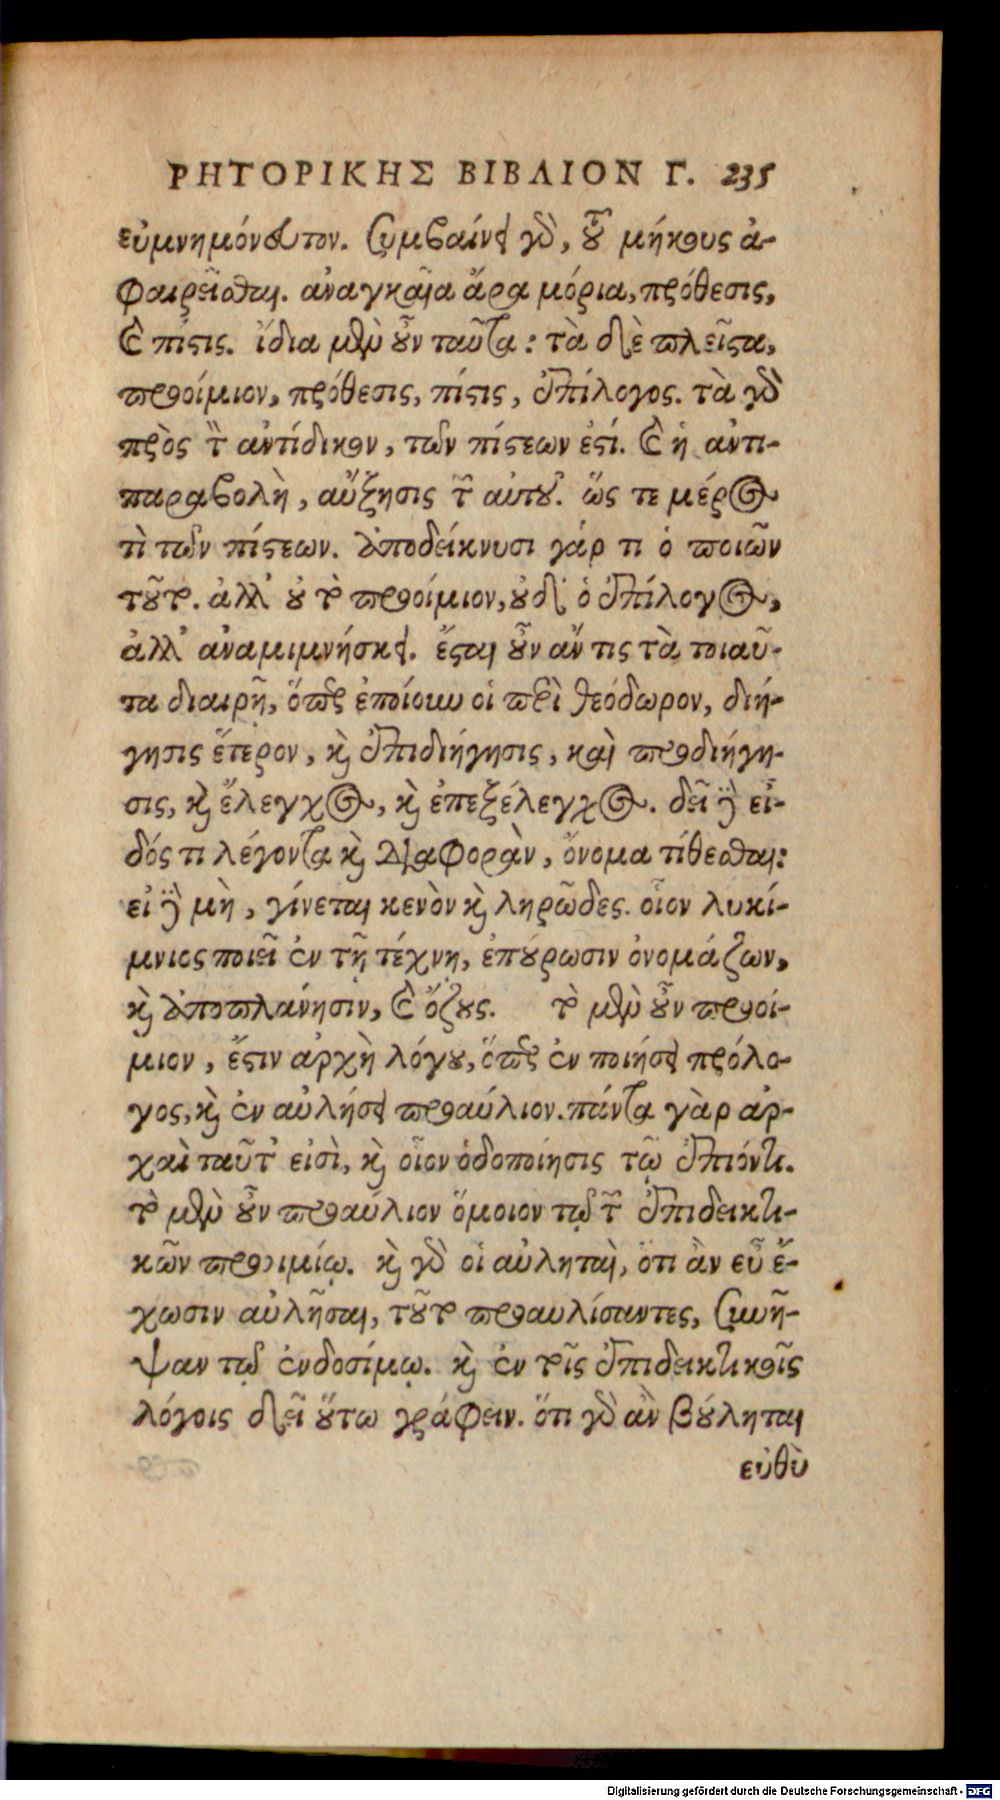 ΡΗΤΟΡΙΚΗΣ ΒΙΒΛΙΟΝ Γ. 235
εὐμνημόνευτον. Συμβαίνει γδ, τοῦ μήκους ἀ-
φαιρεῖσθαι. ἀναγκαῖα ἄρα μόρια, πρόθεσις,
καὶ πίστις. ἴδια μὲν οὖν ταῦτα: τὰ δὲ πλεῖστα,
προοίμιον, πρόθεσις, πίστις, ἐπίλογος. τὰ γδ
πρὸς τὸν ἀντίδικον, τῶν πίστεων ἐστί. καὶ ἡ ἀντι-
παραβολὴ, αὔξησις τῶν αὐτοῦ. ὥς τε μέρος
τὶ τῶν πίστεων. ἀποδείκνυσι γάρ τι ὁ ποιῶν
τοῦτο. ἀλλ' οὐ τὸ προοίμιον, οὐδ' ὁ ἐπίλογος,
ἀλλ' ἀναμιμνήσκει. ἔσται οὖν ἄν τις τὰ τοιαῦ-
τα διαιρῇ, ὅπερ ἐποίουν οἱ περὶ θεόδωρον, διή-
γησις ἕτερον, καὶ ἐπιδιήγησις, καὶ προδιήγη-
σις, καὶ ἔλεγχος, καὶ ἐπεξέλεγχος. δεῖ δὲ εἶ-
δός τι λέγοντα καὶ διαφορὰν, ὄνομα τίθεσθαι:
εἰ δὲ μὴ, γίνεται κενὸν καὶ ληρῶδες. οἷον λυκί-
μνιος ποιεῖ ἐν τῇ τέχνῃ, ἐπούρωσιν ὀνομάζων,
καὶ ἀποπλάνησιν, καὶ ὄζους. τὸ μὲν οὖν προοί-
μιον, ἔστιν ἀρχὴ λόγου, ὅπερ ἐν ποιήσει πρόλο-
γος, καὶ ἐν αὐλήσει προαύλιον. πάντα γὰρ ἀρ-
χαὶ ταῦτ' εἰσὶ, καὶ οἷον ὁδοποίησις τῷ ἐπιόντι.
τὸ μὲν οὖν προαύλιον ὅμοιον τῷ τῶν ἐπιδεικτι-
κῶν προοιμίῳ. καὶ γδ οἱ αὐληταὶ, ὅτι ἂν εὖ ἔ-
χωσιν αὐλῆσαι, τοῦτο προαυλίσαντες, συνῆ-
ψαν τῷ ἐνδοσίμῳ. καὶ ἐν τοῖς ἐπιδεικτικοῖς
λόγοις δεῖ οὕτω γράφειν. ὅτι γδ ἂν βούληται
εὐθὺ
Digitalisierung gefördert durch die Deutsche Forschungsgemeinschaft - DFG